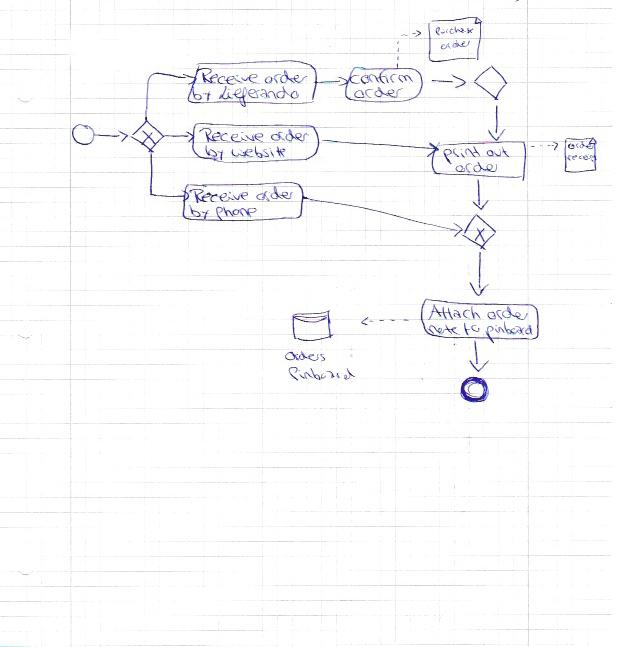 Purchase
order
Receive order
by Lieferando
confirm
order
X
Receive order
by website
print out
order
order
Receive order
by phone
X
Attach order
note to pinboard
Orders
Pinboard